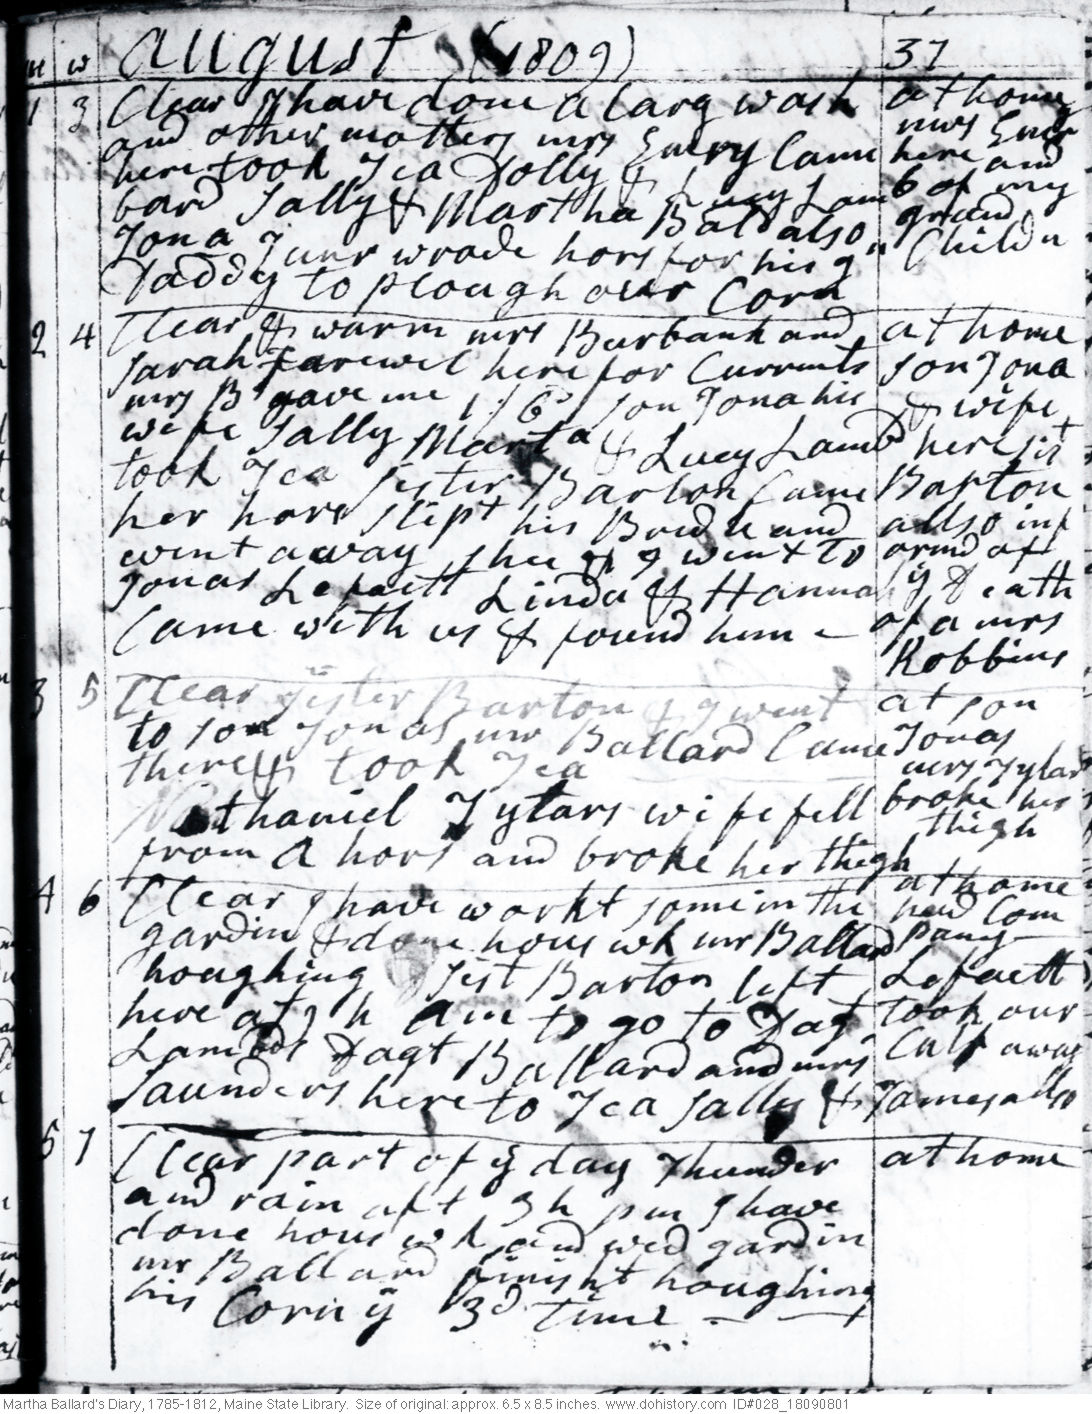 m w august (1809) 37
1 3 Clear I have done a larg wash
and other matters mrs Emery Came
here took Tea Dolly & Lucy Lam
bard Sally & Martha Bald also
Jona Junr wrode hors for his g
Daddy to plough our Corn
at home
mrs Emer
here and
6 of my
grand
Childn
2 4 Clear & warm mrs Burbank and
Sarah farewel here for Currents
mrs B gave me 1/6 son Jona his
wife Sally Marta & Lucy Lambd
took Tea sister Barton Came
her hors slipt his Bridle and
went away shee & I went to
Jonas Lefaett Linda & Hannah
Came with us & found him -
at home
son Jona
& wife
here sist
Barton
allso inf
ormd of
ÿ Death
of a mrs
Robbins
3 5 Clear sister Barton & I went
to son Jonas mr Ballard Came
there & took Tea
Nathaniel Tylars wife fell
from a hors and broke her thigh
at son
Jonas
mrs Tylar
broke her
thigh
4 6 Clear I have workt some in the
gardin & done hous wk mr Ballard
houghing sist Barton left
here at h Am to go to Dagt
Lambds Dagt Ballard and mrs
Saunders here to Tea Sally &
at home
had Com
pany
Lefaett
took our
Calf away
James allso
5 7 Clear part of ÿ day Thunder
and rain aft 3 h pm I have
done hous wk and wed gardin
mr Ballard finisht houghing
his Corn ÿ 3d time - -
at home
Martha Ballard's Diary, 1785-1812, Maine State Library. Size of original: approx. 6.5 x 8.5 inches. www.dohistory.com ID#028_18090801